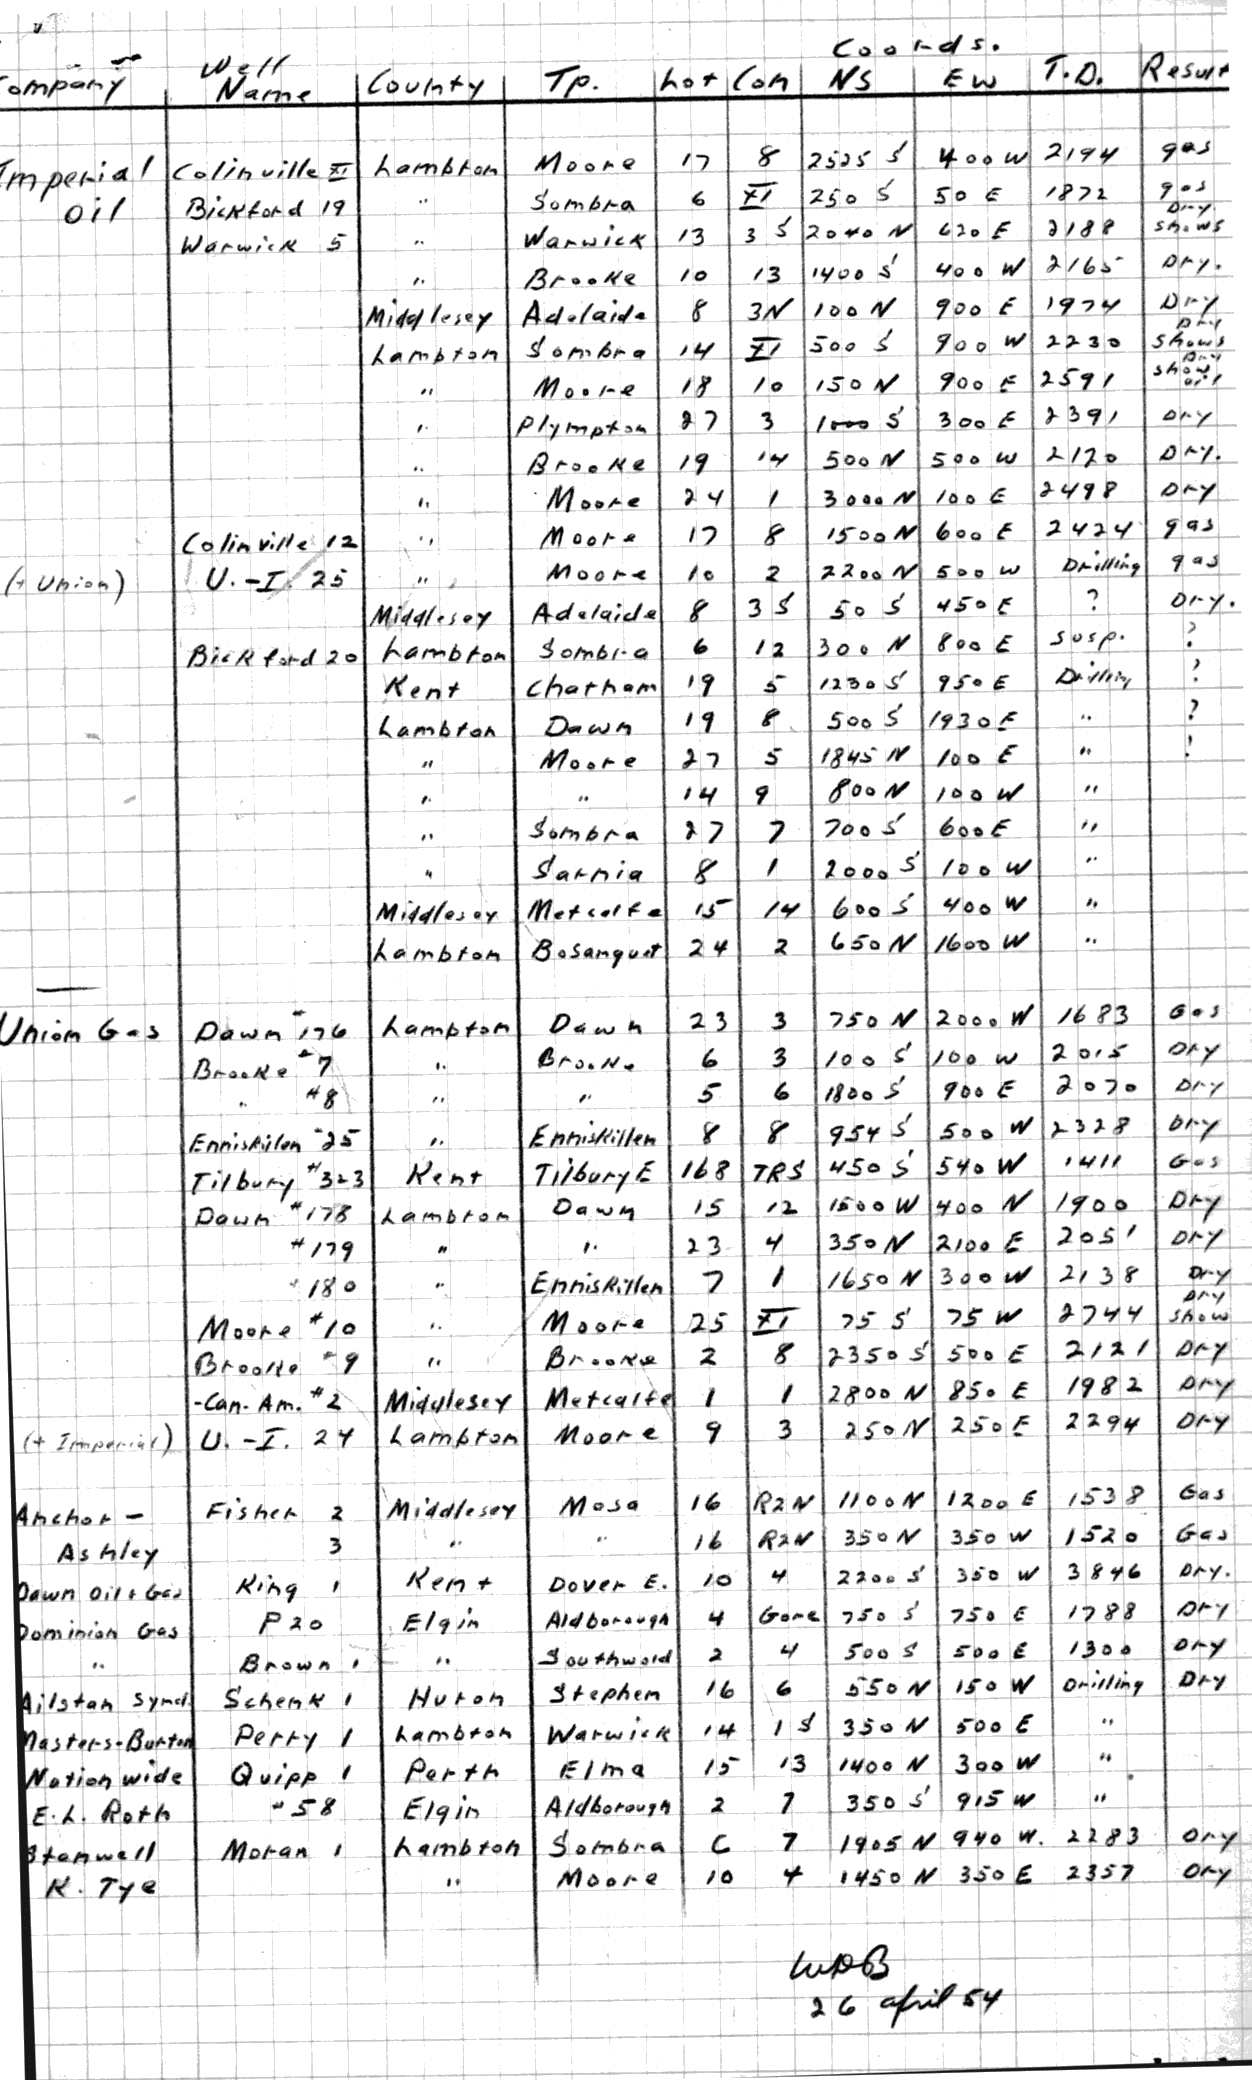 Coords.
Company Well Name County Tp. Lot Con NS EW T.D. Result
Imperial Colinville XI Lambton Moore 17 8 2525 S 400 W 2194 gas
Oil Bickford 19 " Sombra 6 XI 250 S 50 E 1872 gas
Warwick 5 " Warwick 13 3 S 2040 N 620 E 2188 Dry. shows
" Brooke 10 13 1400 S 400 W 2165 Dry.
Middlesey Adelaide 8 3N 100 N 900 E 1974 Dry
Lambton Sombra 14 XI 500 S 900 W 2230 Dry Shows
" Moore 18 10 150 N 900 E 2591 Dry show oil
" Plympton 27 3 1000 S 300 E 2391 Dry
" Brooke 19 14 500 N 500 W 2120 Dry.
" Moore 24 1 3000 N 100 E 2498 Dry
Colinville 12 " Moore 17 8 1500 N 600 E 2424 gas
(+ Union) U.-I. 25 " Moore 10 2 2200 N 500 W Drilling gas
Middlesey Adelaide 8 3 S 50 S 450 E ? Dry.
Bickford 20 Lambton Sombra 6 12 300 N 800 E Susp. ?
Kent Chatham 19 5 1230 S 950 E Drilling ?
Lambton Dawn 19 8 500 S 1930 E " ?
" Moore 27 5 1845 N 100 E " ?
" " 14 9 800 N 100 W "
" Sombra 27 7 700 S 600 E "
" Sarnia 8 1 2000 S 100 W "
Middlesey Metcalfe 15 14 600 S 400 W "
Lambton Bosanquet 24 2 650 N 1600 W "
Union Gas Dawn #176 Lambton Dawn 23 3 750 N 2000 W 1683 Gas
Brooke #7 " Brooke 6 3 100 S 100 W 2015 Dry
" #8 " " 5 6 1800 S 900 E 2070 Dry
Enniskillen #25 " Enniskillen 8 8 954 S 500 W 2328 Dry
Tilbury #323 Kent Tilbury E 168 TRS 450 S 540 W 1411 Gas
Dawn #178 Lambton Dawn 15 12 1500 W 400 N 1900 Dry
#179 " " 23 4 350 N 2100 E 2051 Dry
#180 " Enniskillen 7 1 1650 N 300 W 2138 Dry
Moore #10 " Moore 25 XI 75 S 75 W 2744 Dry show
Brooke #9 " Brooke 2 8 2350 S 500 E 2121 Dry
-Can-Am. #2 Middlesey Metcalfe 1 1 2800 N 850 E 1982 Dry
(+ Imperial) U.-I. 24 Lambton Moore 9 3 250 N 250 E 2294 Dry
Anchor- Fisher 2 Middlesey Mosa 16 R2N 1100 N 1200 E 1538 Gas
Ashley 3 " " 16 R2N 350 N 350 W 1520 Gas
Dawn Oil + Gas King 1 Kent Dover E. 10 4 2200 S 350 W 3846 Dry.
Dominion Gas P20 Elgin Aldborough 4 Gore 750 S 750 E 1788 Dry
" Brown 1 " Southwold 2 4 500 S 500 E 1300 Dry
Ailstan Synd. Schenk 1 Huron Stephen 16 6 550 N 150 W Drilling Dry
Masters-Burton Perry 1 Lambton Warwick 14 1 S 350 N 500 E "
Nationwide Quipp 1 Perth Elma 15 13 1400 N 300 W "
E.L. Roth #58 Elgin Aldborough 2 7 350 S 915 W "
Stanwell Moran 1 Lambton Sombra C 7 1905 N 940 W. 2283 Dry
K. Tye " Moore 10 4 1450 N 350 E 2357 Dry
WDB
26 april 54